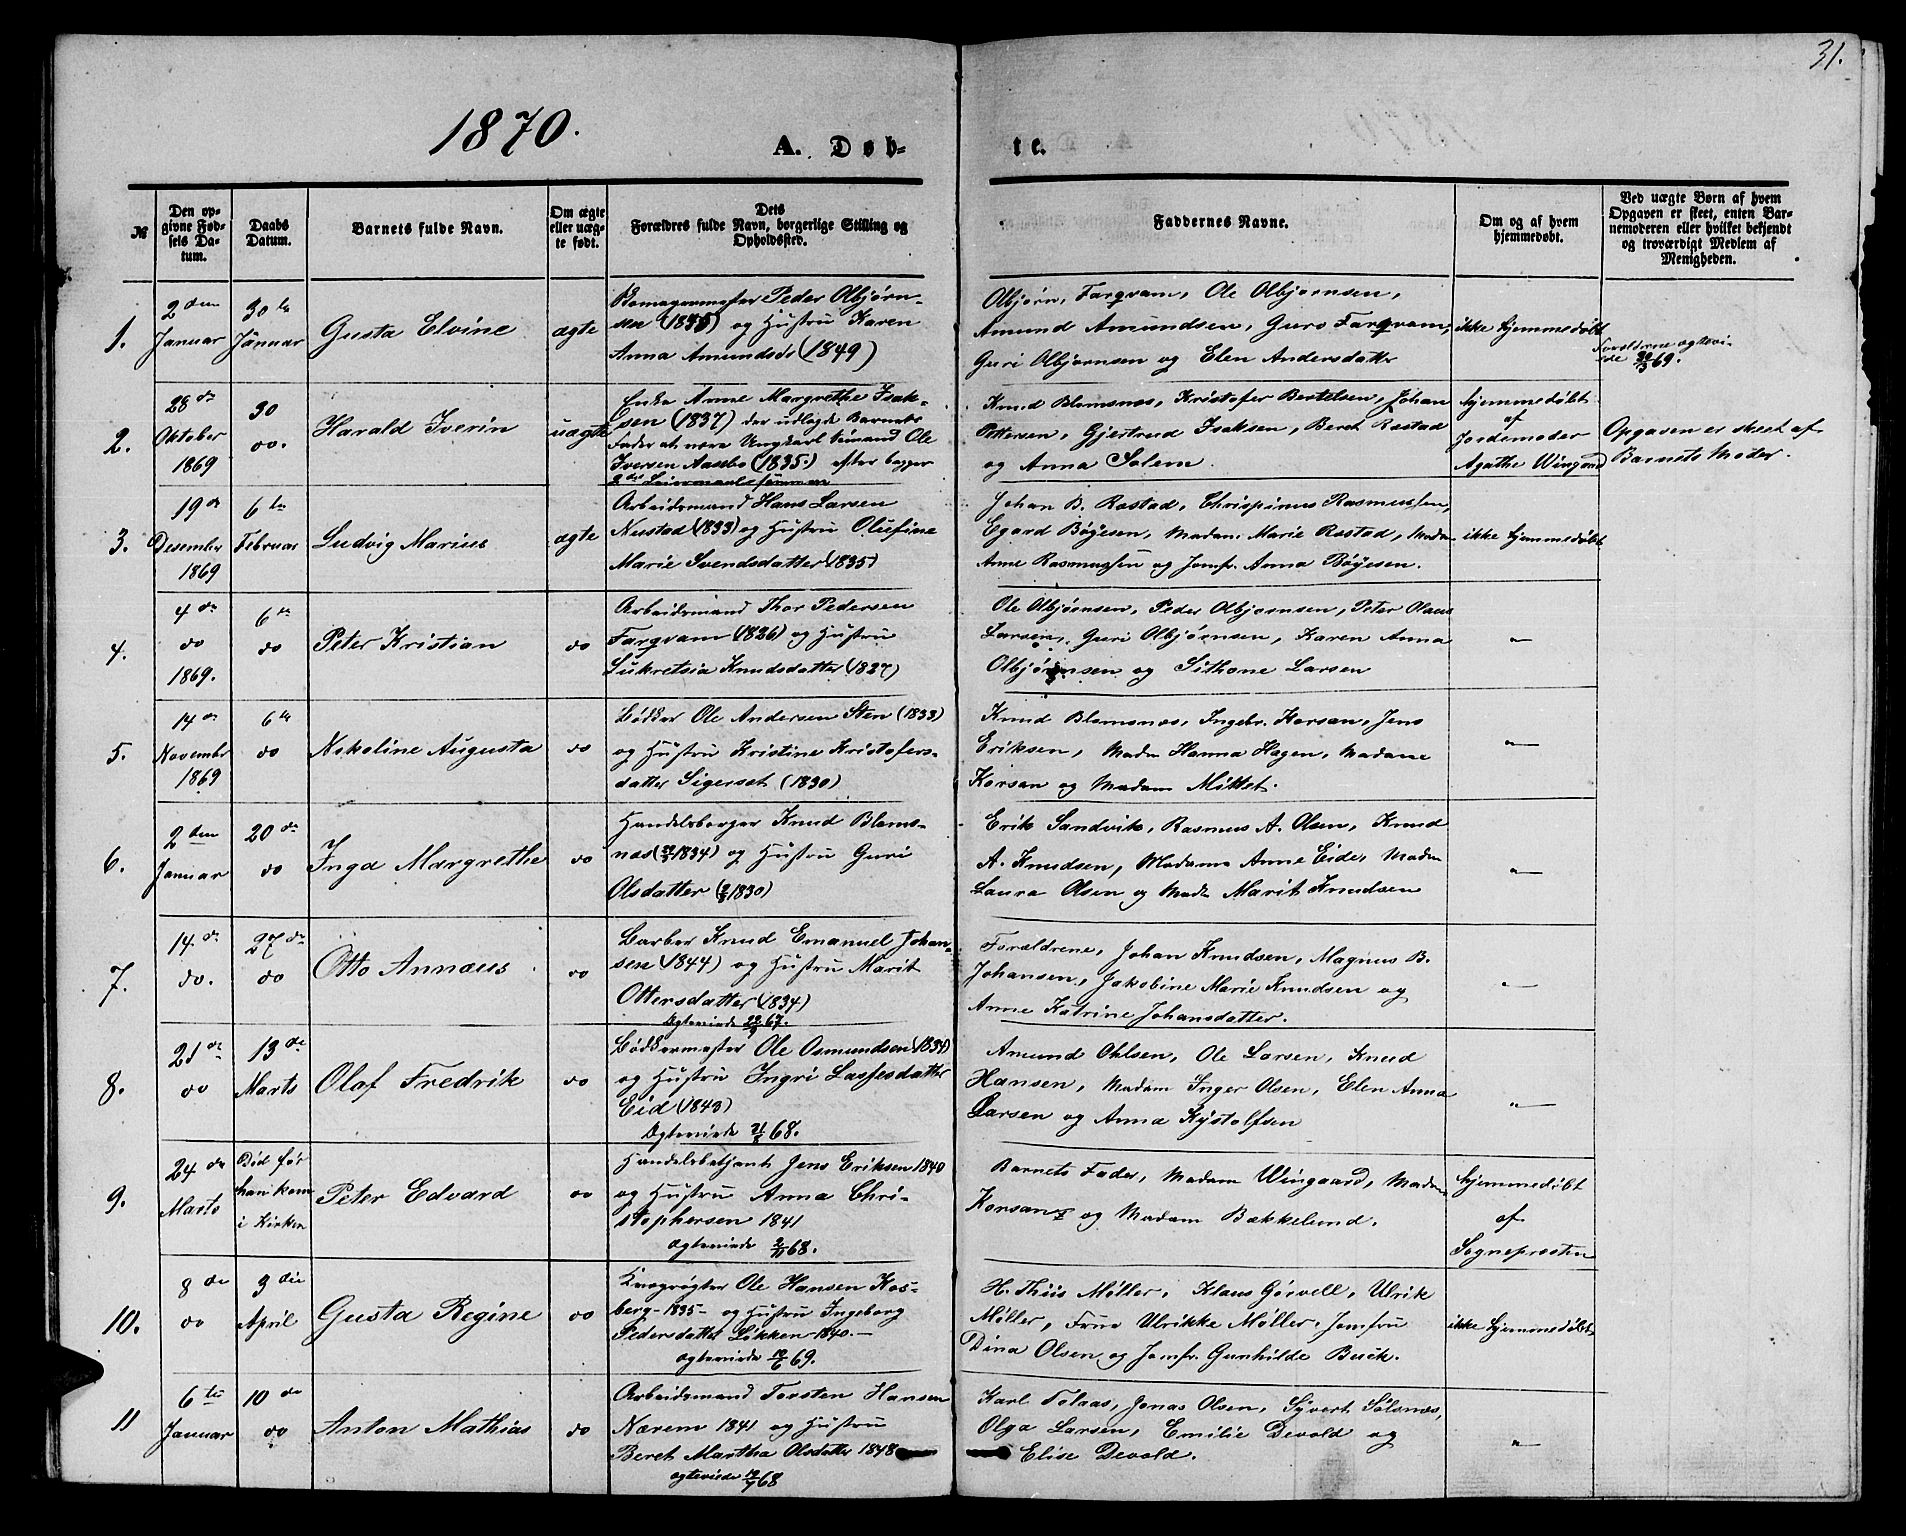 31.
1870.
A. Døb-
te.
№
Den op-
givne Fød-
sels Da-
tum.
Daabs
Datum.
Barnets fulde Navn.
Om ægte
eller uæg-
te født.
Dets
Forældres fulde Navn, borgerlige Stilling og
Opholdssted.
Faddernes Navne.
Om og af hvem
hjemmedøbt.
Ved uægte Børn af hvem
Opgaven er skeet, enten Bar-
nemoderen eller hvilket bekjendt
og troværdigt Medlem af
Menigheden.
1.
2den
Januar
30te
Januar
Gusta Elvine
ægte
Peder Olbjørn-
sen (1835) og Hustru Karen
Anna Amundsdr (1849)
Olbjørn, Fargvam, Ole Olbjørnsen,
Amund Amundsen, Guro Fargvam,
Guri Olbjørnsen og Elen Andersdatter
ikke hjemmedøbt
Forældrene ægtevi-
ede 30/3 69.
2.
28de
Oktober
1869
30
do.
Harald Iverin
uægte
Enke Anne Margrethe Isak-
sen (1837) der udlagde Barnets
Fader at være Ungkarl Simand Ole
Iversen Aasebø (1835.) efter begges
2det Leiermaalssammen
Knud Blomsnes, Kristofer Bertelsen, Johan
Pettersen, Gjertrud Isaksen, Beret Rostad
og Anna Solem.
hjemmedøbt
af
Jordemoder
Agathe Wingard
Opgaven er skeet af
Barnets Moder.
3.
19de
Desember
1869
6te
Februar
Ludvig Marius
ægte
Arbeidsmand Hans Larsen
Nustad (1833) og Hustru Olufine
Marie Svendsdatter (1835)
Johan B. Rostad, Chrispinus Rasmussen,
Egard Bøyesen, Madam Marie Rostad, Madm
Anne Rasmussen og Jomfr. Anna Bøyesen.
ikke hjemmedøbt
4.
4de
do
1869.
6te
do
Peter Kristian
do
Arbeidsmand Thor Pedersen
Fargvam (1826) og Hustru
Lukretsia Knudsdatter (1827)
Ole Olbjørnsen, Peder Olbjørnsen, Peter Olaus
Larsen, Guri Olbjørnsen, Karen Anna
Olbjørnsen og Sithone Larsen
"
5.
14de
November
1869
6te
do
Nikoline Augusta
do
Bødker Ole Andersen Sten (1833)
og Hustru Kristine Kristofers-
datter Sigerset (1830)
Knud Blomsnes, Ingebr. Korsan, Jens
Eriksen, Madm Hanna Hagen, Madame
Korsan og Madam Mittet.
"
6.
2den
Januar
20de
do
Inga Margrethe
do
Handelsborger Knud Bloms-
nes ( 1834) og Hustru Guri
Olsdatter ( 1830)
Erik Sandvik, Rasmus A. Olsen, Knud
A. Knudsen, Madame Anne Eide, Madm
Laura Olsen og Madm Marit Knudsen
"
7.
14de
do.
27de
do
Otto Annæus
do
Barber Knud Emanuel Johan-
sen (1844) og Hustru Marit
Ottersdatter (1834)
Ægteviede 22/9 67.
Forældrene, Johan Knudsen, Magnus B.
Johansen, Jakobine Marie Knudsen og
Anne Katrine Johansdatter.
"
8.
21de
do
13de
Marts
Olaf Fredrik
do
Bødkermester Ole Osmundsen (1834)
og Hustru Ingri Lassesdatter
Eid (1843)
Ægteviede 68.
Amund Ohlsen, Ole Larsen, Knud
Hansen, Madam Inger Olsen, Elen Anna
Larsen og Anna Kystolfsen
"
9.
24de
Marts
Død før
han kom
i Kirken
Peter Edvard
do
Handelsbetjent Jens Eriksen 1840
og Hustru Anna Chri-
stophersen 1841
Ægteviede 2/11 68.
Barnets Fader, Madam Wingaard, Madam
Korsan og Madam Bækkelund.
hjemmedøbt
af
Sognepresten
10.
8de
do
3die
April
Gusta Regine
do
Ole Hansen Kos-
berg - 1835 - og Hustru Ingeborg
Pedersdatter Løkken 1840. -
Ægteviede 69.
H. Thiis Møller, Klaus Gørvell, Ulrik
Møller, Frue Ulrikke Møller, Jomfru
Dina Olsen og Jomfr. Gunhilde Buck.
ikke hjemmedøbt
11
6te
Januar
10de
do
Anton Mathias
do
Arbeidsmand Torsten Hansen
Nærem 1841 og Hustru
Beret Martha Olsdatter 1848
ægteviede 68
Karl Tolaas, Jonas Olsen, Syvert Solsnes,
Olga Larsen, Emilie Devold og
Elise Devold.
"